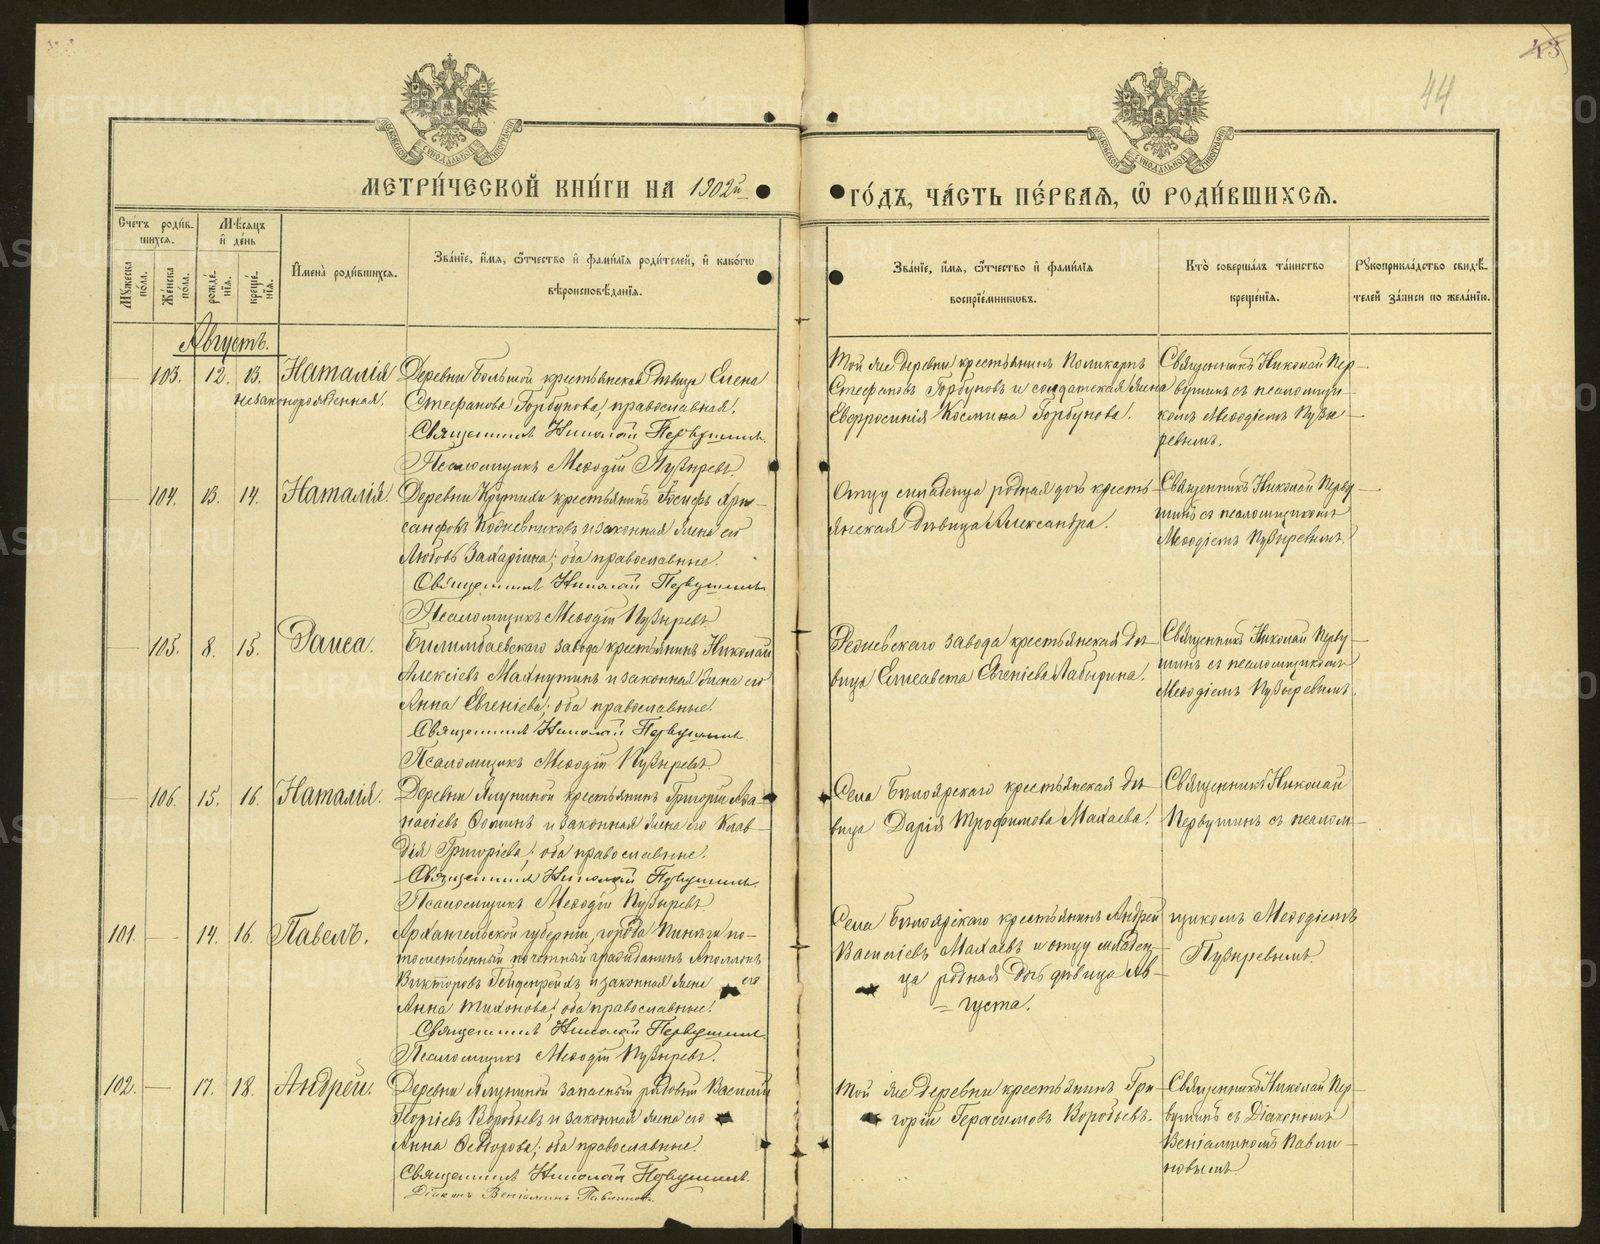 43
44
МЕТРИ́ЧЕСКОЙ КНИ́ГИ НА 1902й
ГО́ДЪ, ЧА́СТЬ ПЕ́РВАЯ, Ѡ РОДИ́ВШИХСЯ.
Сче́тъ роди́в-
шихся.
Мѣсяцъ
и҆ де́нь
Мꙋжеска пола.
Же́нска пола.
рожде́нїѧ.
креще́нїѧ.
И҆мена̀ роди́вшихся.
Зва́нїе, и҆́мя, ѻ҆́тчество и҆ фами́лїя роди́телей, и҆ како́гѡ
вѣроисповѣ́данїя.
Зва́нїе, и҆́мя, ѻ҆́тчество и҆ фами́лїя
воспрїе́мниковъ.
Кто̀ соверша́лъ та́инство
креще́нїя.
Рꙋкоприкла́дство свидѣ́-
телей за́писи по жела́нїю.
Августъ.
103. 12. 13. Наталія
незаконорожденная.
Деревни Большой крестьянская дѣвица Елена
Стефанова Горбунова, православная.
Священникъ Николай Первушинъ.
Псаломщикъ Меѳодій Пузыревъ
Той же деревни крестьянинъ Поликарпъ
Стефановъ Горбуновъ и солдатская жена
Евфросинія Космина Горбунова.
Священникъ Николай Пер-
вушинъ съ псаломщи-
комъ Меѳодіемъ Пузы-
ревымъ.
104. 13. 14. Наталія.
Деревни Крутихи крестьянинъ Іосифъ Хри-
санфовъ Кодневниковъ и законная жена его
Любовь Захаріина; оба православные.
Священникъ Николай Первушинъ
Псаломщикъ Меѳодій Пузыревъ
Отцу младенца родная дочь кресть-
янская дѣвица Александра.
Священникъ Николай Перву-
шинъ съ псаломщикомъ
Меѳодіемъ Пузыревымъ.
105. 8. 15. Раиса.
Билимбаевскаго завода крестьянинъ Николай
Алексіевъ Махнутинъ и законная жена его
Анна Евгеніева; оба православные.
Священникъ Николай Первушинъ
Псаломщикъ Меѳодій Пузыревъ.
завода крестьянская дѣ-
вица Елисавета Евгеніева Лабырина.
Священникъ Николай Перву-
шинъ съ псаломщикомъ
Меѳодіемъ Пузыревымъ.
106. 15. 16. Наталія.
Деревни Ялуниной крестьянинъ Григорій Аѳа-
насіевъ Ѳоминъ и законная жена его Клав-
дія Григоріева; оба православные.
Священникъ Николай Первушинъ.
Псаломщикъ Меѳодій Пузыревъ
Села Бѣлоярскаго крестьянская дѣ-
вица Дарія Трофимова Махаева.
Священникъ Николай
Первушинъ съ псалом-
101. 14. 16. Павелъ.
Архангельской губерніи, города Пинеги по-
томственный почетный гражданинъ Аполлонъ
Викторовъ Гейденрейхъ и законная жена его
Анна Тихонова; оба православные.
Священникъ Николай Первушинъ.
Псаломщикъ Меѳодій Пузыревъ.
Села Бѣлоярскаго крестьянинъ Андрей
Василіевъ Махаевъ и отцу младен-
ца родная дочь дѣвица Ав-
густа.
щикомъ Меѳодіемъ
Пузыревымъ.
102. 17. 18. Андрей.
Деревни Ялуниной запасный рядовой Василій
Воробьевъ и законная жена его
Анна Ѳеодорова; оба православные.
Священникъ Николай Первушинъ.
Діаконъ Веніаминъ Павлиновъ.
Той же деревни крестьянинъ Гри-
горій Герасимовъ Воробьевъ.
Священникъ Николай Пер-
вушинъ съ Діакономъ
Веніаминомъ Павли-
новымъ